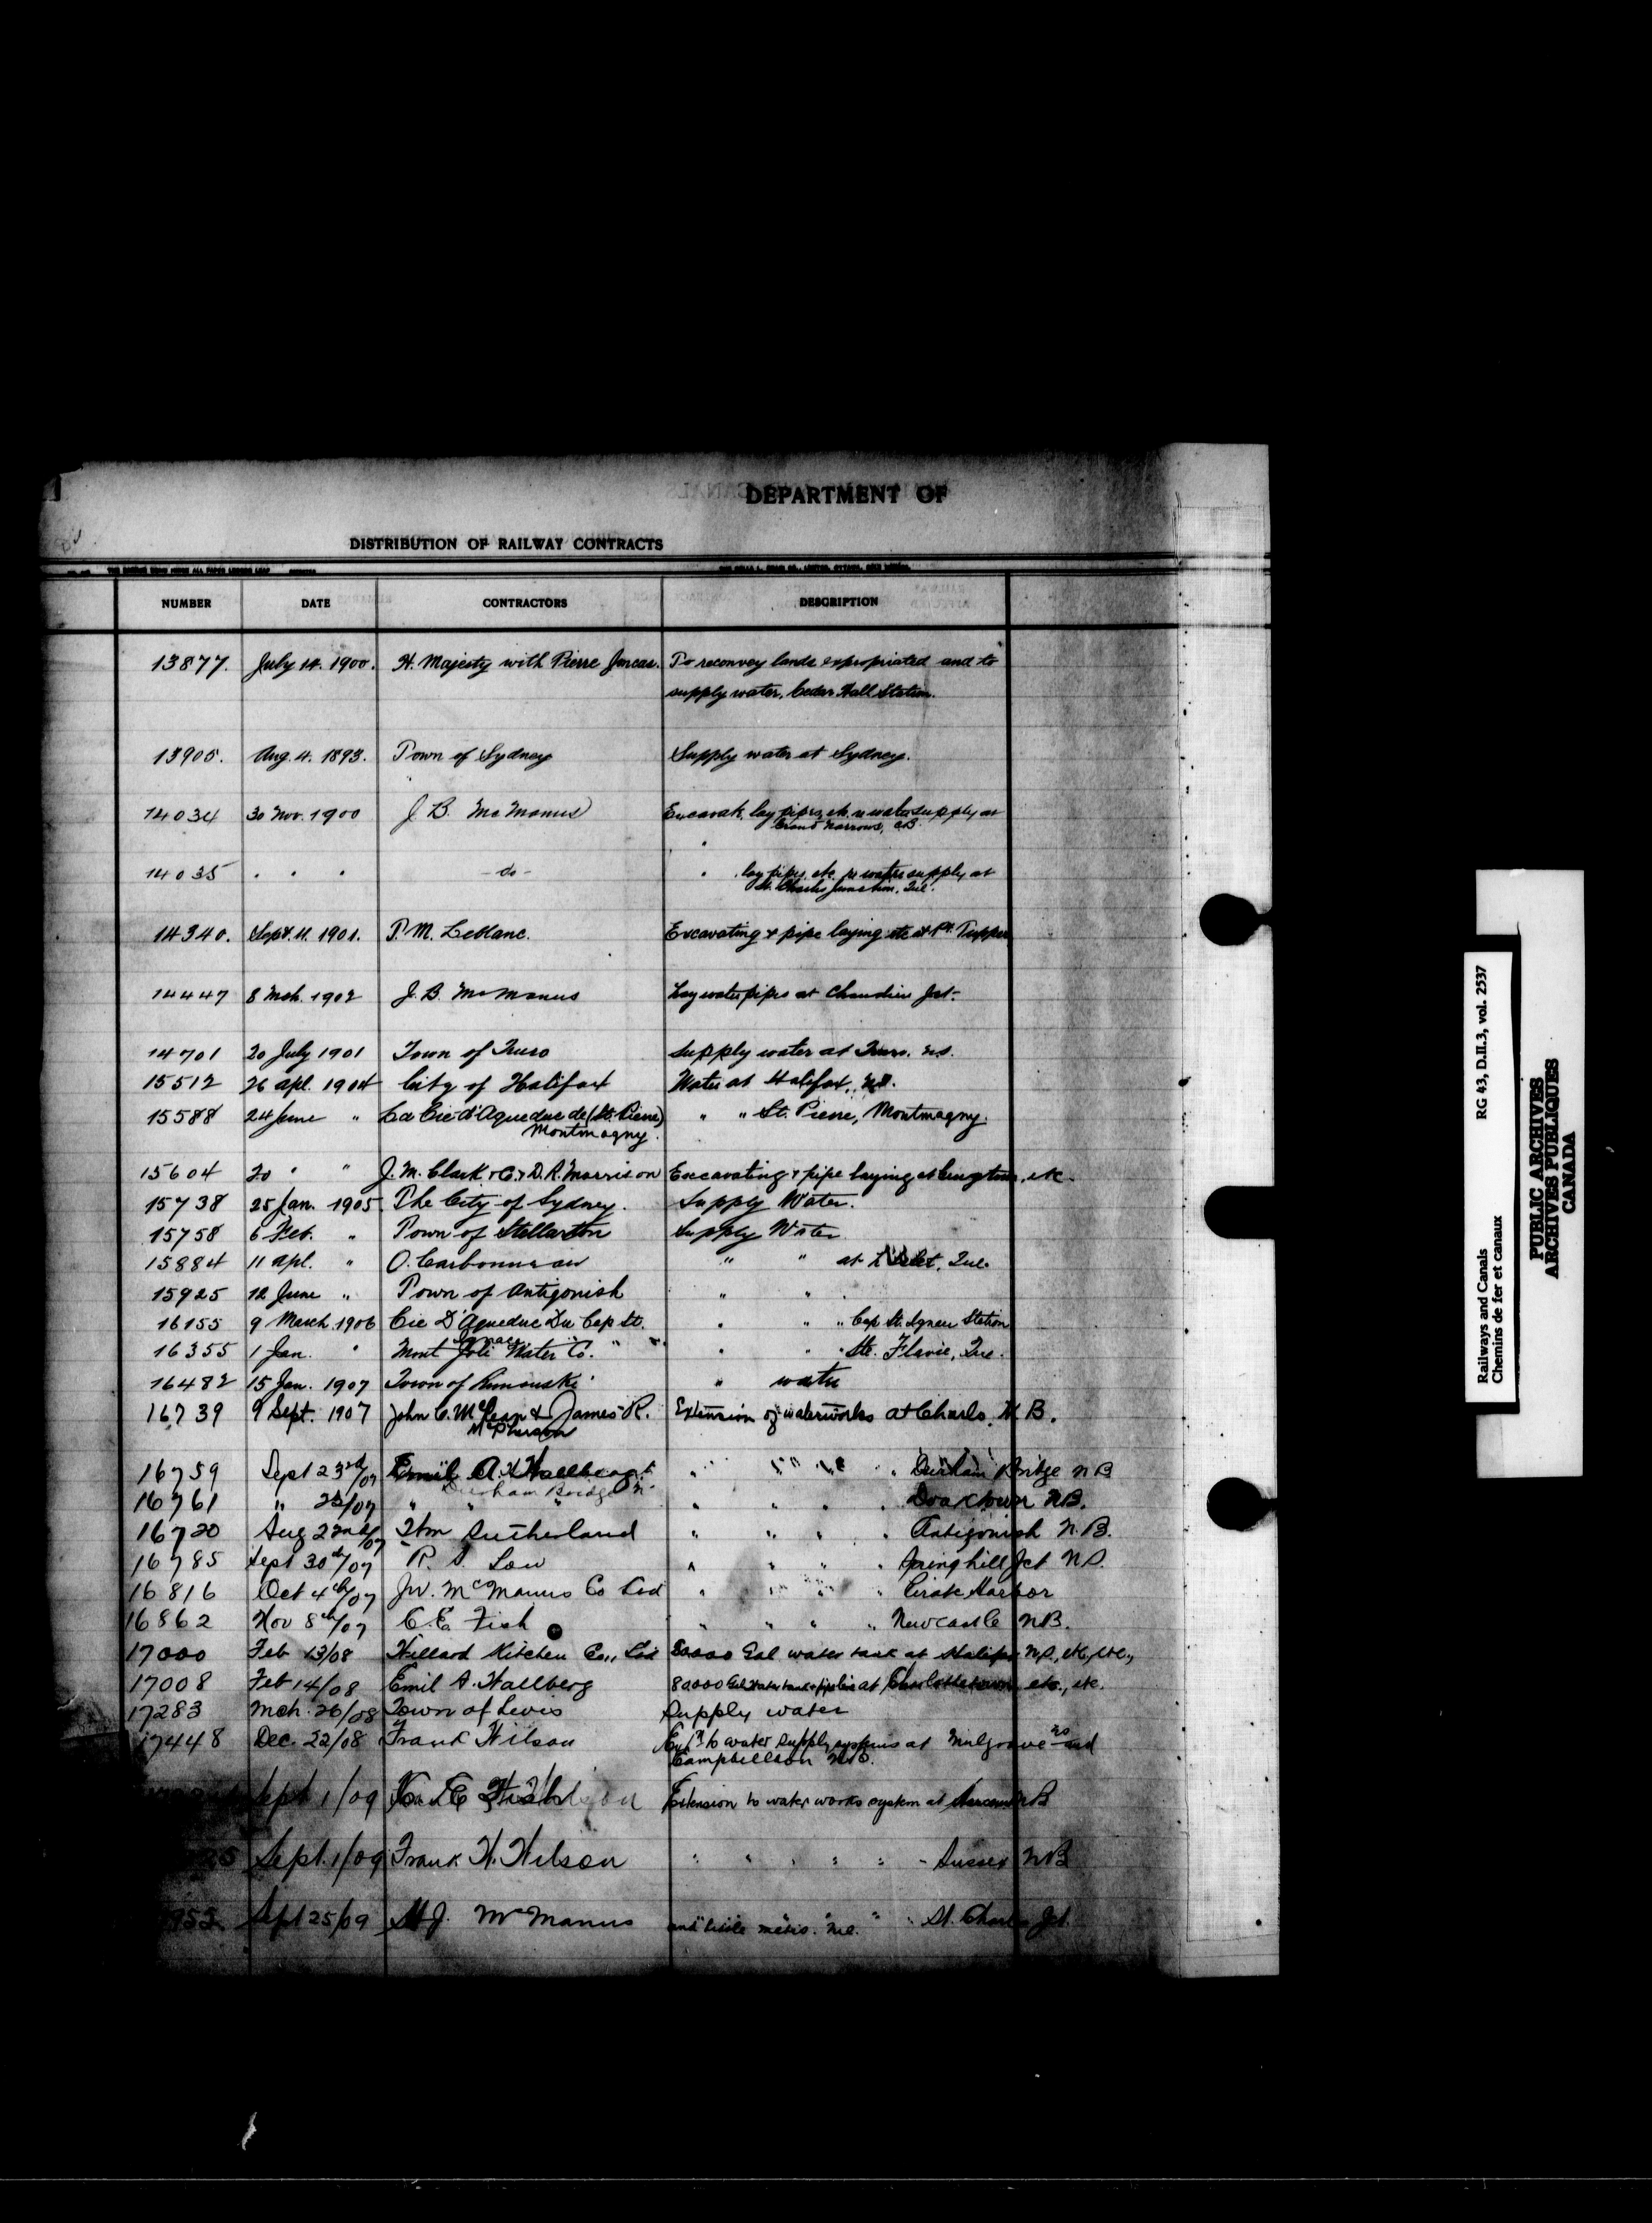 DEPARTMENT OF
DISTRIBUTION OF RAILWAY CONTRACTS
NUMBER DATE CONTRACTORS DESCRIPTION
13877. July 14. 1900. H. Majesty with Pierre To reconvey lands expropriated and to
supply water, Cedar Hall Station.
13905. Aug. 4. 1893. Town of Sydney Supply water at Sydney.
14034 30 Nov. 1900 J. B. McManus Excavate, lay pipes, etc. water supply at
Grand Narrows, C.B.
14035 " " " - do - " lay pipes, etc. water supply at
St. Charles Junction, Que.
14340. Sept. 11. 1901. P. M. Leblanc. Excavating & pipe laying etc at Pt. Tupper
14447 8 Mch. 1902 J. B. McManus Lay water pipes at Chaudiere Jct.
14701 20 July 1901 Town of Truro Supply water at Truro. N.S.
15512 26 Apl. 1904 City of Halifax Water at Halifax, N.S.
15588 24 June " La Cie d'Aqueduc de (St. Pierre) " " St. Pierre, Montmagny.
Montmagny.
15604 20 " " J. M. Clark & D. R. Morrison Excavating & pipe laying at etc.
15738 25 Jan. 1905. The City of Sydney. Supply Water.
15758 6 Feb. " Town of Stellarton Supply Water
15884 11 Apl. " O. Carbonneau " " at L'Islet, Que.
15925 12 June " Town of Antigonish " "
16155 9 March 1906 Cie D'Aqueduc Du Cap St. " " " Cap St. Ignace Station
Ignace
16355 1 Jan. " Mont Joli Water Co. " " " Ste. Flavie, Que.
16482 15 Jan. 1907 Town of Rimouski " water
16739 9 Sept. 1907 John C. McLean & James R. Extension of waterworks at Charlo. N.B.
McPherson
16759 Sept 23rd/07 Emil A. Wallberg " " " " Durham Bridge N B
Durham Bridge N.
16761 " 23/07 " " " " " " " Doaktown N.B.
16720 Aug 22nd/07 Sutherland " " " " Antigonish N.B.
16785 Sept 30th/07 R. S. Low " " " " Springhill Jct N.S.
16816 Oct 4th/07 McManus Co Ltd " " " " Pirate Harbor
16862 Nov 8th/07 C. E. Fish " " " " Newcastle N.B.
17000 Feb 13/08 Willard Kitchen Co., Ltd 80000 Gal water tank at Halifax N.S., etc., etc.,
17008 Feb 14/08 Emil A. Wallberg 80000 Gal. Water tank & pipe line at Charlottetown etc., etc.
17283 Mch. 26/08 Town of Levis Supply water
17448 Dec. 22/08 Frank Wilson Extn to water supply systems at Mulgrave NS and
Campbellton N.B.
Sept 1/09 Extension to water works system at N B
Sept. 1/09 Frank H. Wilson " " " " " - Sussex N B
Sept 25/09 McManus " " " " St. Charles Jct.
and Little Metis. Que.
Railways and Canals RG 43, D.II.3, vol. 2537
Chemins de fer et canaux
PUBLIC ARCHIVES
ARCHIVES PUBLIQUES
CANADA